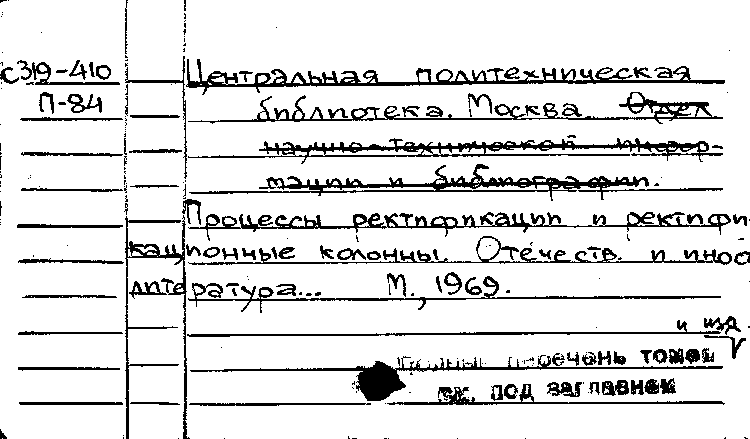 С319-410 Центральная политехническая
П-84 библиотека. Москва. Отдел
научно-технической инфор-
мации и библиографии.
Процессы ректификации и ректифи-
кационные колонны. Отечеств. и иностр
литература... М., 1969.
и изд.
Полный перечень томов
см. под заглавием